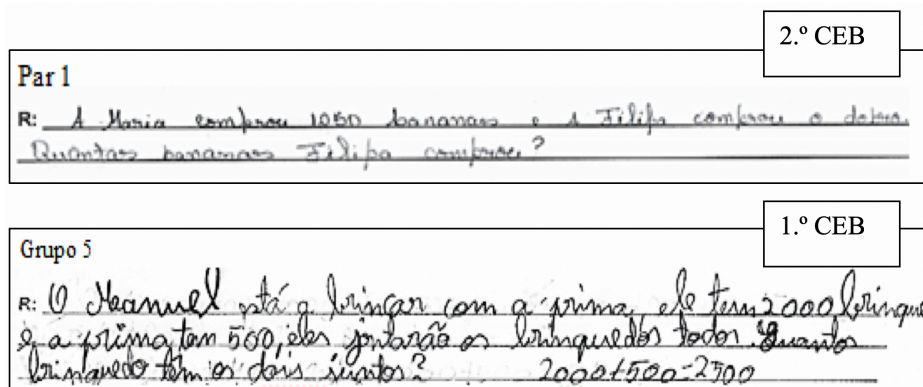 2.º CEB
Par 1
R: A Maria comprou 1050 bananas e A Filipa comprou o dobro.
Quantas bananas Filipa comprou?
1.º CEB
Grupo 5
R: O Manuel está a brincar com a prima, ele tem 2000 brinque
e a prima tan 500, eles jontarão os brinquedos todos. Quantos
brinquedo têm os dois juntos? 2000+500=2500